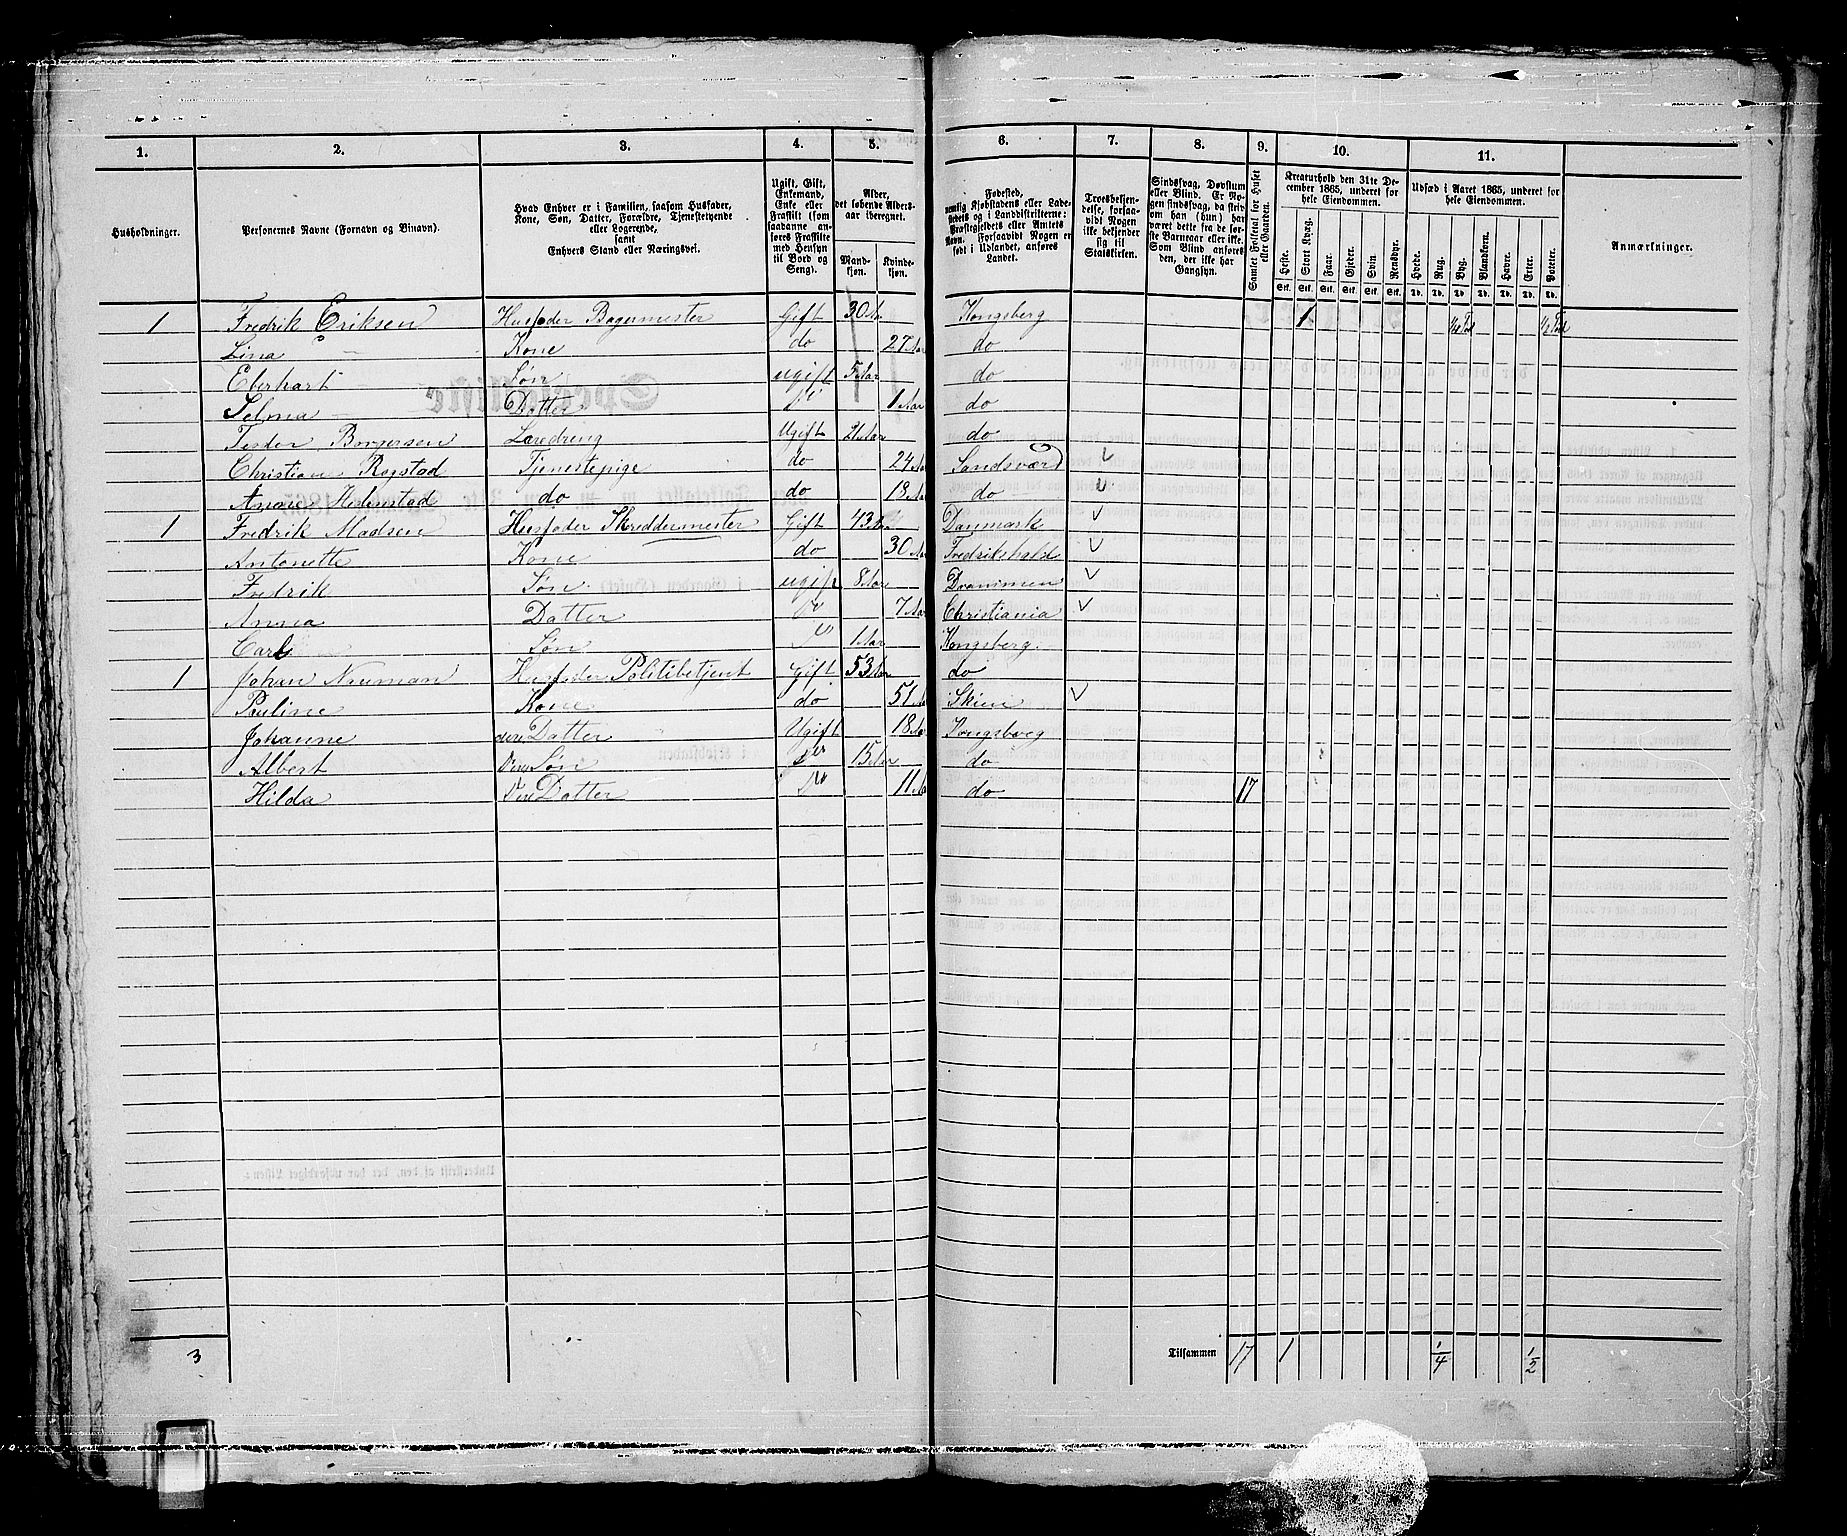 1. 2. 3. 4. 5. 6. 7. 8. 9. 10. 11.
Husholdninger.
Personernes Navne (Fornavn og Binavn).
Hvad Enhver er i Familien, saasom Husfader, Kone, Søn, Datter, Forældre, Tjenestetyende eller Logerende, samt Enhvers Stand eller Næringsvei.
Ugift, Gift, Enkemand, Enke eller Fraskilt (som saadanne anføres Fraskilte med Hensyn til Bord og Seng).
Alder, det løbende Aldersaar iberegnet.
Mandkjøn. Kvindekjøn.
Fødested, nemlig Kjøbstadens eller Ladestedets og i Landdistrikterne: Præstegjeldets eller Amtets Navn. Forsaavidt Nogen er født i Udlandet, anføres Landet.
Troesbekjendelse, forsaavidt Nogen ikke bekjender sig til Statskirken.
Sindssvag, Døvstum eller Blind. Er Nogen sindssvag, da skrives om han (hun) har været dette fra de første Barneaar eller ikke. Som Blind anføres den, der ikke har Gangsyn.
Samlet Folketal for Huset eller Gaarden.
Kreaturhold den 31te December 1865, underet for hele Eiendommen.
Heste. Stort Kvæg. Faar. Gjeder. Svin. Rensdyr.
Stk. Stk. Stk. Stk. Stk. Stk.
Udsæd i Aaret 1865, underet for hele Eiendommen.
Hvede. Rug. Byg. Blandkorn. Havre. Erter. Poteter.
Td. Td. Td. Td. Td. Td. Td.
Anmærkninger.
1 Fredrik Eriksen Husfader Bagermester Gift 30 Aar Kongsberg 1 1/4 Td 1/2 Td
Lina Kone do 27 Aar do
Eberhart Søn ugift 5 Aar do
Selma Datter do 1 Aar do
Borgersen Læredreng Ugift 21 Aar do
Christiane Rogstad Tjenestepige do 24 Aar Sandsvær
Helmstad do do 18 Aar do
1 Fredrik Madsen Husfader Skreddermester Gift 43 Aar Danmark
Antonette Kone do 30 Aar Fredrikshald
Fredrik Søn ugift 8 Aar Drammen
Anna Datter do 7 Aar Christiania
Carl Søn do 1 Aar Kongsberg
1 Johan Nauman Husfader Politibetjent Gift 53 Aar do
Pauline Kone do 51 Aar Skien
Johanne deres Datter Ugift 18 Aar Kongsberg
Albert Deres Søn do 15 Aar do
Hilda Deres Datter do 11 Aar do 17
3 Tilsammen 17 1 1/4 1/2